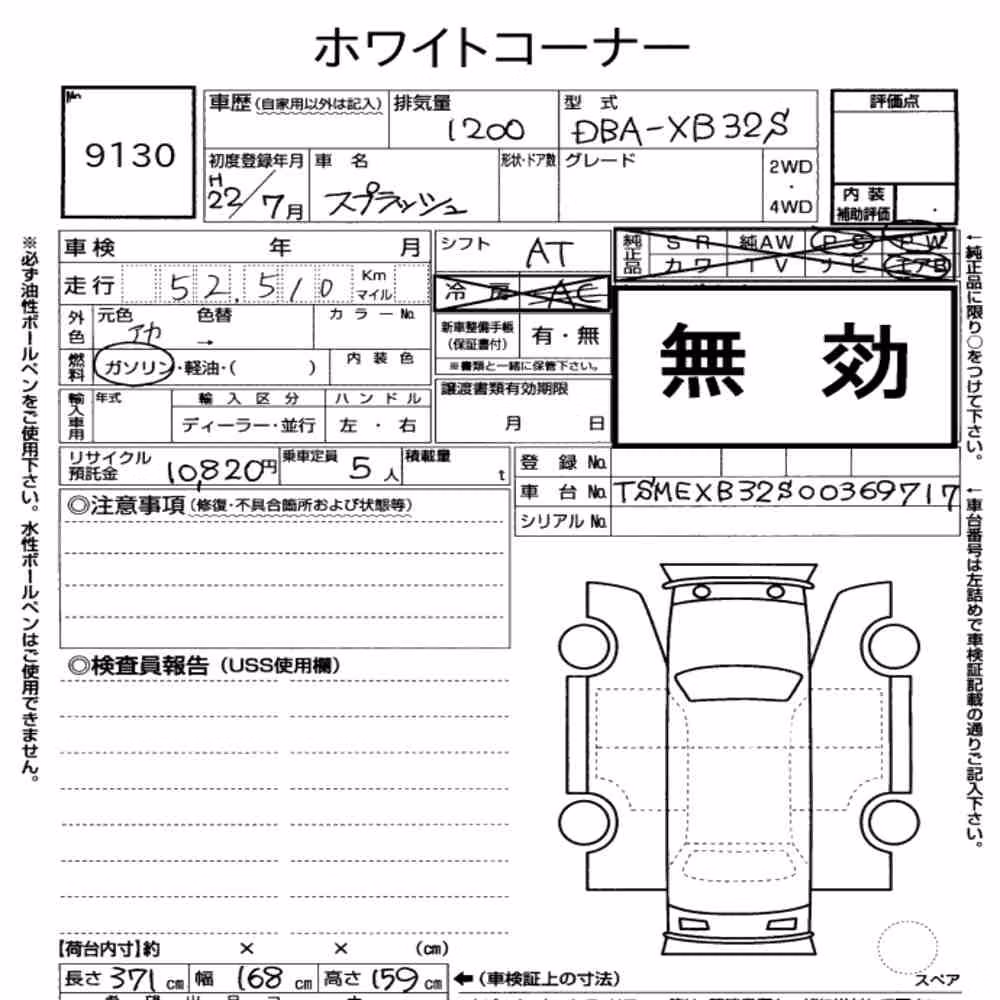 ホワイトコーナー
No.
9130
車歴(自家用以外は記入) 排気量 型 式 評価点
1200 DBA-XB32S
初度登録年月 車 名 形状・ドア数 グレード 2WD
・
H 22/7月 スプラッシュ 4WD
内 装
補助評価
車検 年 月 シフト AT 純正品 SR 純AW PS PW
カワ TV ナビ エアB
走行 52,510 Km
マイル
冷 房 AC
外色 元色 色替 カ ラ ー No.
アカ →
新車整備手帳
(保証書付) 有・無
※書類と一緒に保管下さい。
無 効
燃料 ガソリン・軽油・( ) 内 装 色
譲渡書類有効期限
月 日
輸入車用 年式 輸 入 区 分 ハ ン ド ル
ディーラー・並行 左 ・ 右
リサイクル
預託金 10,820円 乗車定員 5人 積載量 t
登 録 No.
車 台 No. TSMEXB32S00369717
シリアル No.
◎注意事項(修復・不具合箇所および状態等)
◎検査員報告(USS使用欄)
【荷台内寸】約 × × (cm)
長さ 371 cm 幅 168 cm 高さ 159 cm ←(車検証上の寸法)
スペア
※必ず油性ボールペンをご使用下さい。水性ボールペンはご使用できません。
←純正品に限り○をつけて下さい。
←車台番号は左詰めで車検証記載の通りご記入下さい。